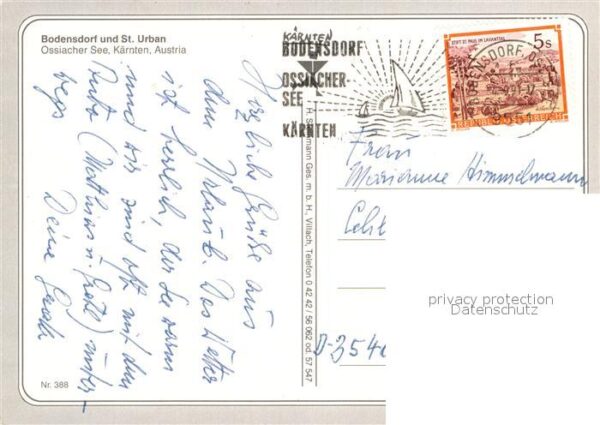 Bodensdorf und St. Urban
Ossiacher See, Kärnten, Austria
Herzliche Grüße aus
dem Urlaub. Das Wetter
ist herrlich, der See warm
und wir sind oft mit dem
Auto (Matthias u. Grete) unter-
wegs
Deine Gerda
Nr. 388
H. Schiffmann Ges. m. b. H., Villach, Telefon 0 42 42 / 56 062 od. 57 547
KÄRNTEN
BODENSDORF
OSSIACHER-
SEE
KÄRNTEN
STIFT ST. PAUL IM LAVANTTAL
5s
REPUBLIK ÖSTERREICH
BODENSDORF, OSS
Frau
Marianne Himmelmann
D-354
privacy protection
Datenschutz